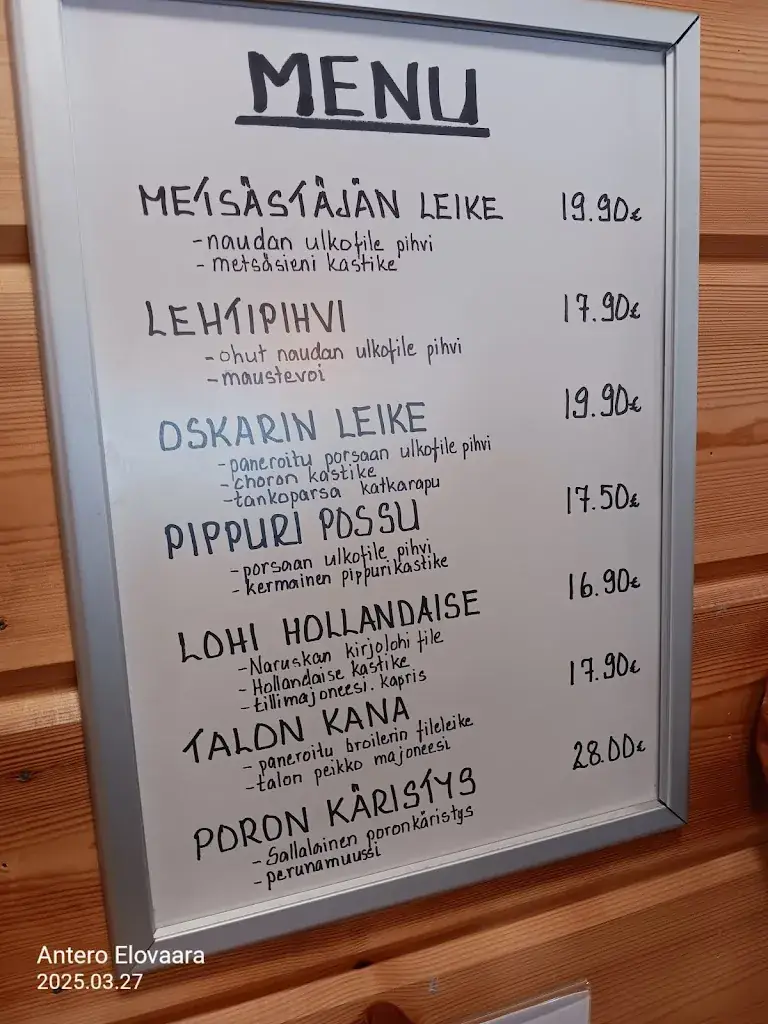 MENU
METSÄSTÄJÄN LEIKE 19.90€
-naudan ulkofile pihvi
- metsäsieni kastike
LEHTIPIHVI 17.90€
-ohut naudan ulkofile pihvi
-maustevoi
OSKARIN LEIKE 19.90€
-paneroitu porsaan ulkofile pihvi
-choron kastike
-tankoparsa katkarapu
PIPPURI POSSU 17.50€
-porsaan ulkofile pihvi
- kermainen pippurikastike
LOHI HOLLANDAISE 16.90€
-Naruskan kirjolohi file
-Hollandaise kastike
-tillimajoneesi. kapris
TALON KANA 17.90€
- paneroitu broilerin fileleike
-talon peikko majoneesi
PORON KÄRISTYS 28.00€
- Sallalainen poronkäristys
-perunamuussi
Antero Elovaara
2025.03.27